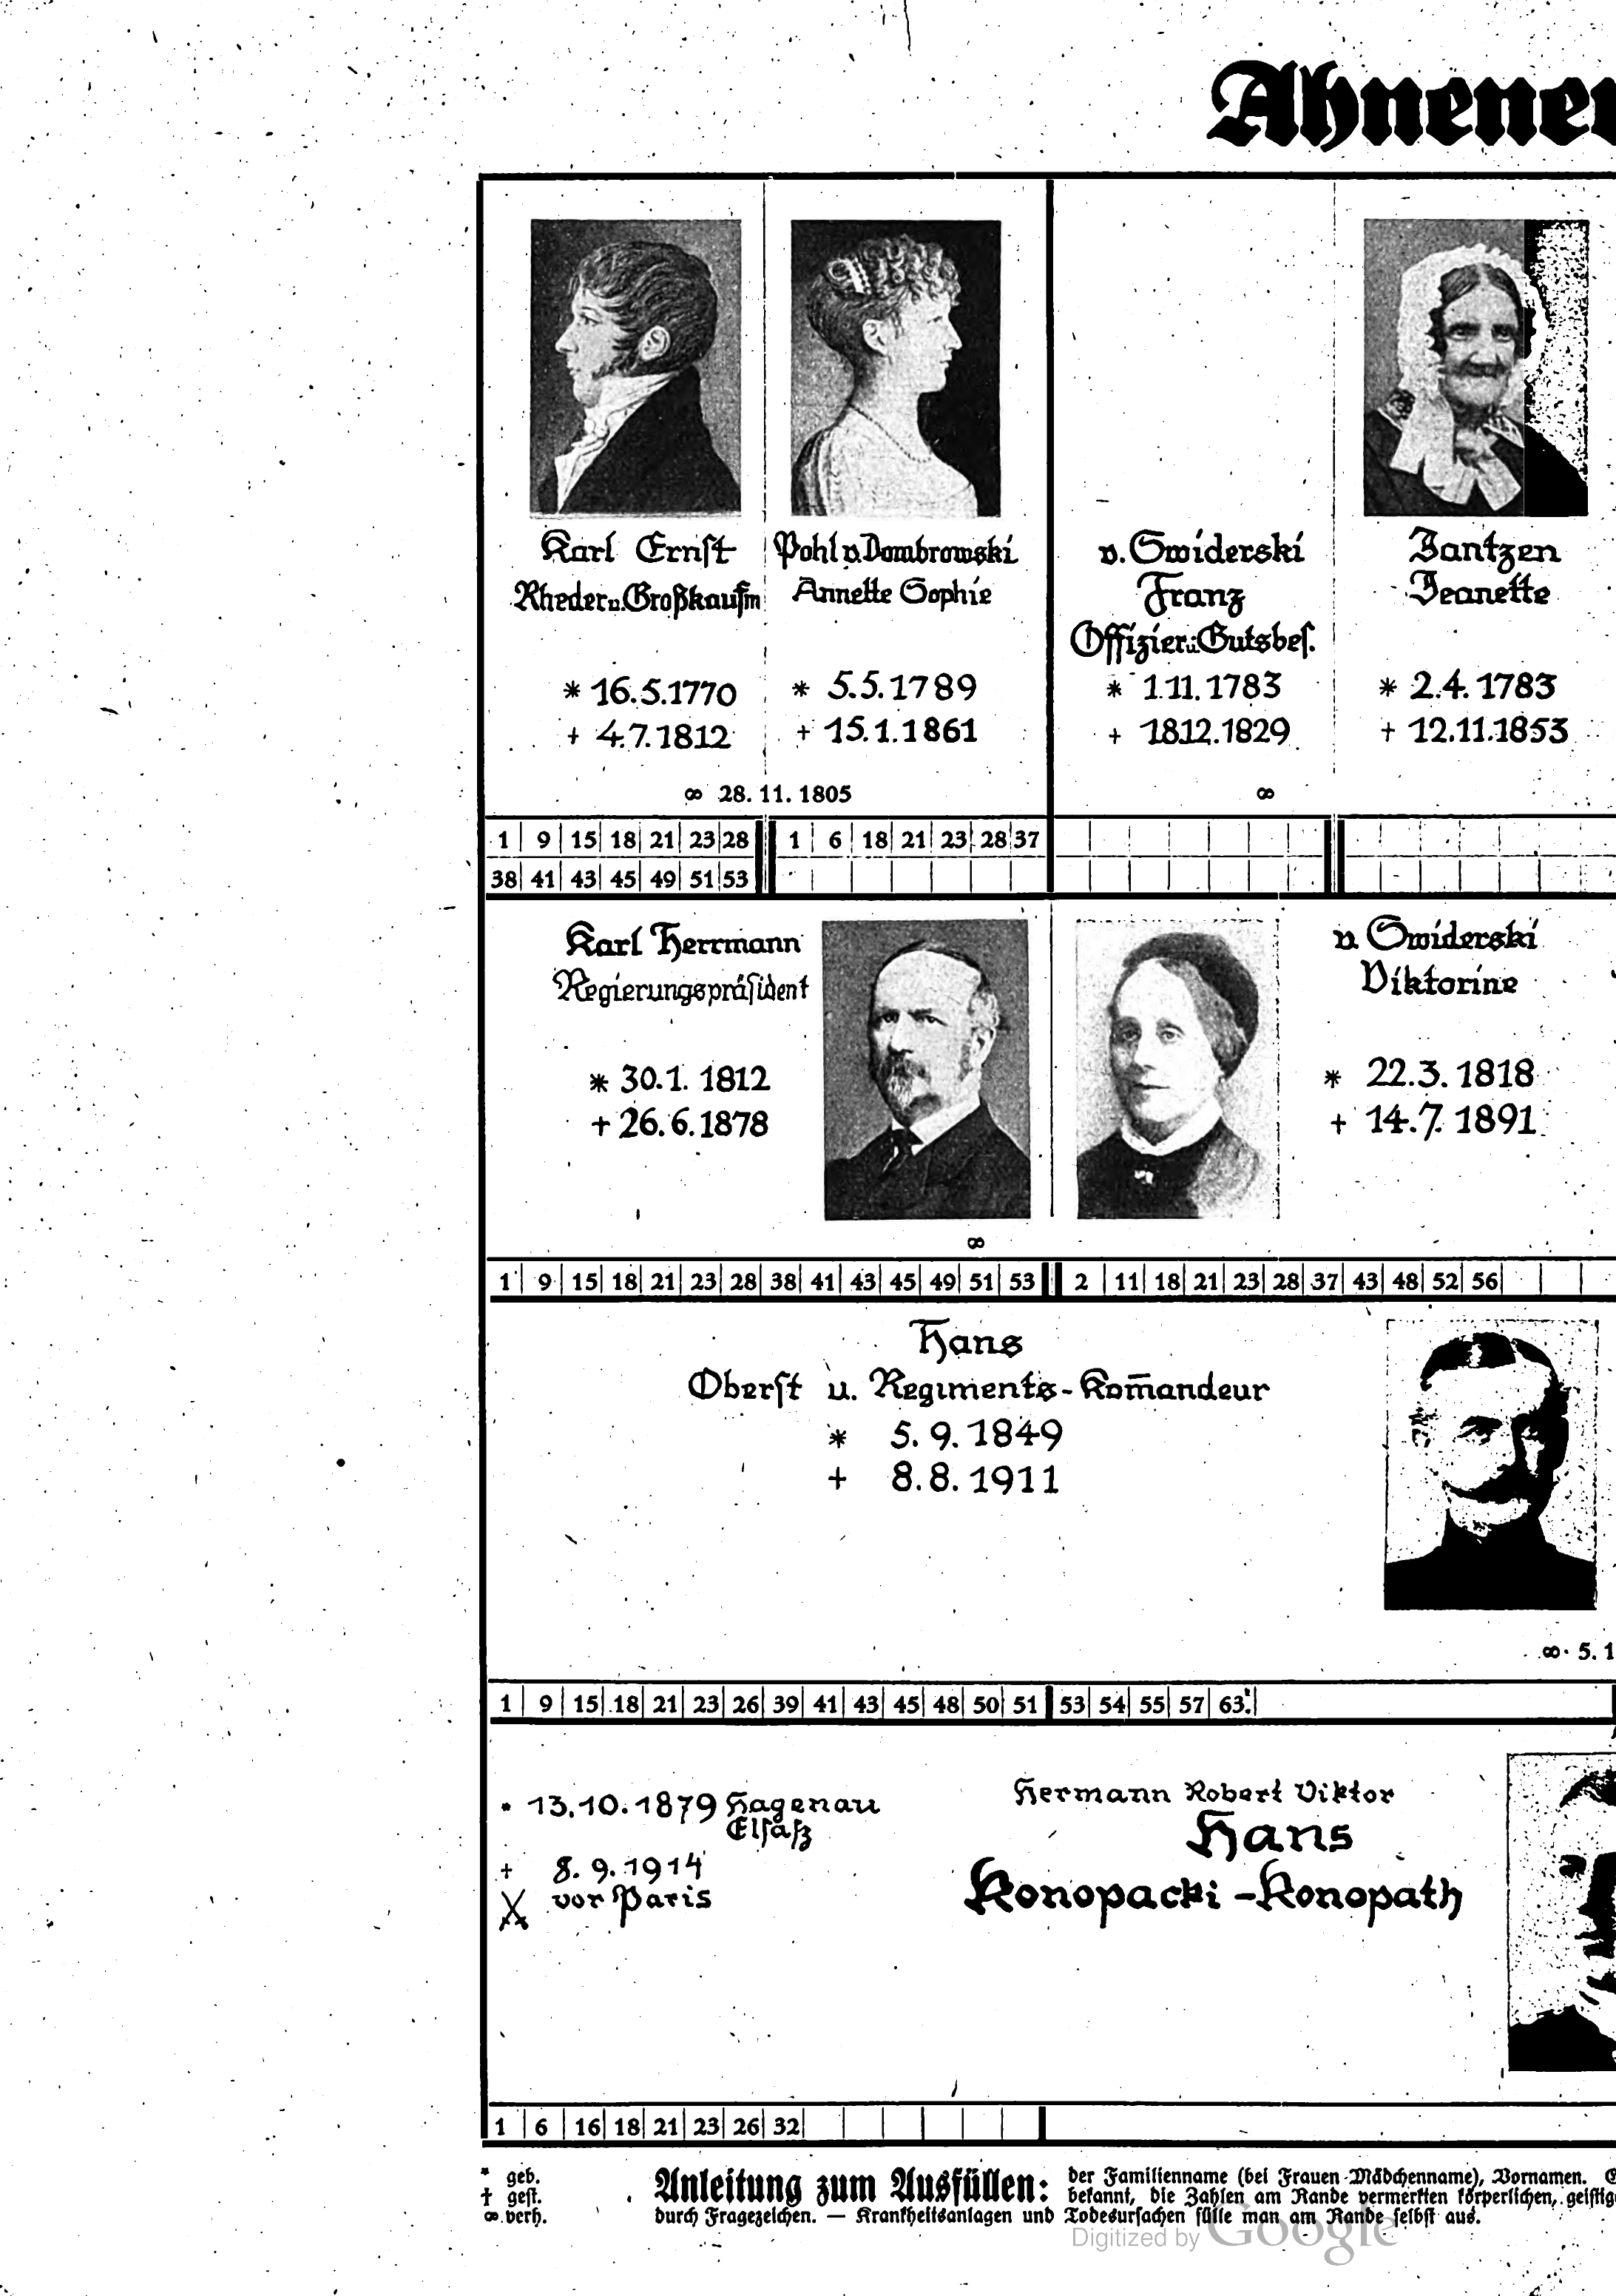 Karl Ernst
Rheder u. Großkaufm
* 16.5.1770
+ 4.7.1812
Pohl v. Dombrowski
Annette Sophie
* 5.5.1789
+ 15.1.1861
∞ 28.11.1805
v. Swiderski
Franz
Offizier u. Gutsbes.
* 1.11.1783
+ 18.12.1829
Jantzen
Jeanette
* 2.4.1783
+ 12.11.1853
∞
1 9 15 18 21 23 28
38 41 43 45 49 51 53
1 6 18 21 23 28 37
Karl Herrmann
Regierungspräsident
* 30.1.1812
+ 26.6.1878
v. Swiderski
Viktorine
* 22.3.1818
+ 14.7.1891
∞
1 9 15 18 21 23 28 38 41 43 45 49 51 53
2 11 18 21 23 28 37 43 48 52 56
Hans
Oberst u. Regiments-Kom̅andeur
* 5.9.1849
+ 8.8.1911
∞ 5. 1
1 9 15 18 21 23 26 39 41 43 45 48 50 51 53 54 55 57 63
* 13.10.1879 Hagenau
Elsaß
+ 8.9.1914
⚔ vor Paris
Hermann Robert Viktor
Hans
Konopacki-Konopath
1 6 16 18 21 23 26 32
* geb.
† gest.
∞ verh.
Anleitung zum Ausfüllen: der Familienname (bei Frauen Mädchenname), Vornamen.
bekannt, die Zahlen am Rande vermerkten körperlichen, geistig
durch Fragezeichen. — Krankheitsanlagen und Todesursachen fülle man am Rande selbst aus.
Digitized by Google